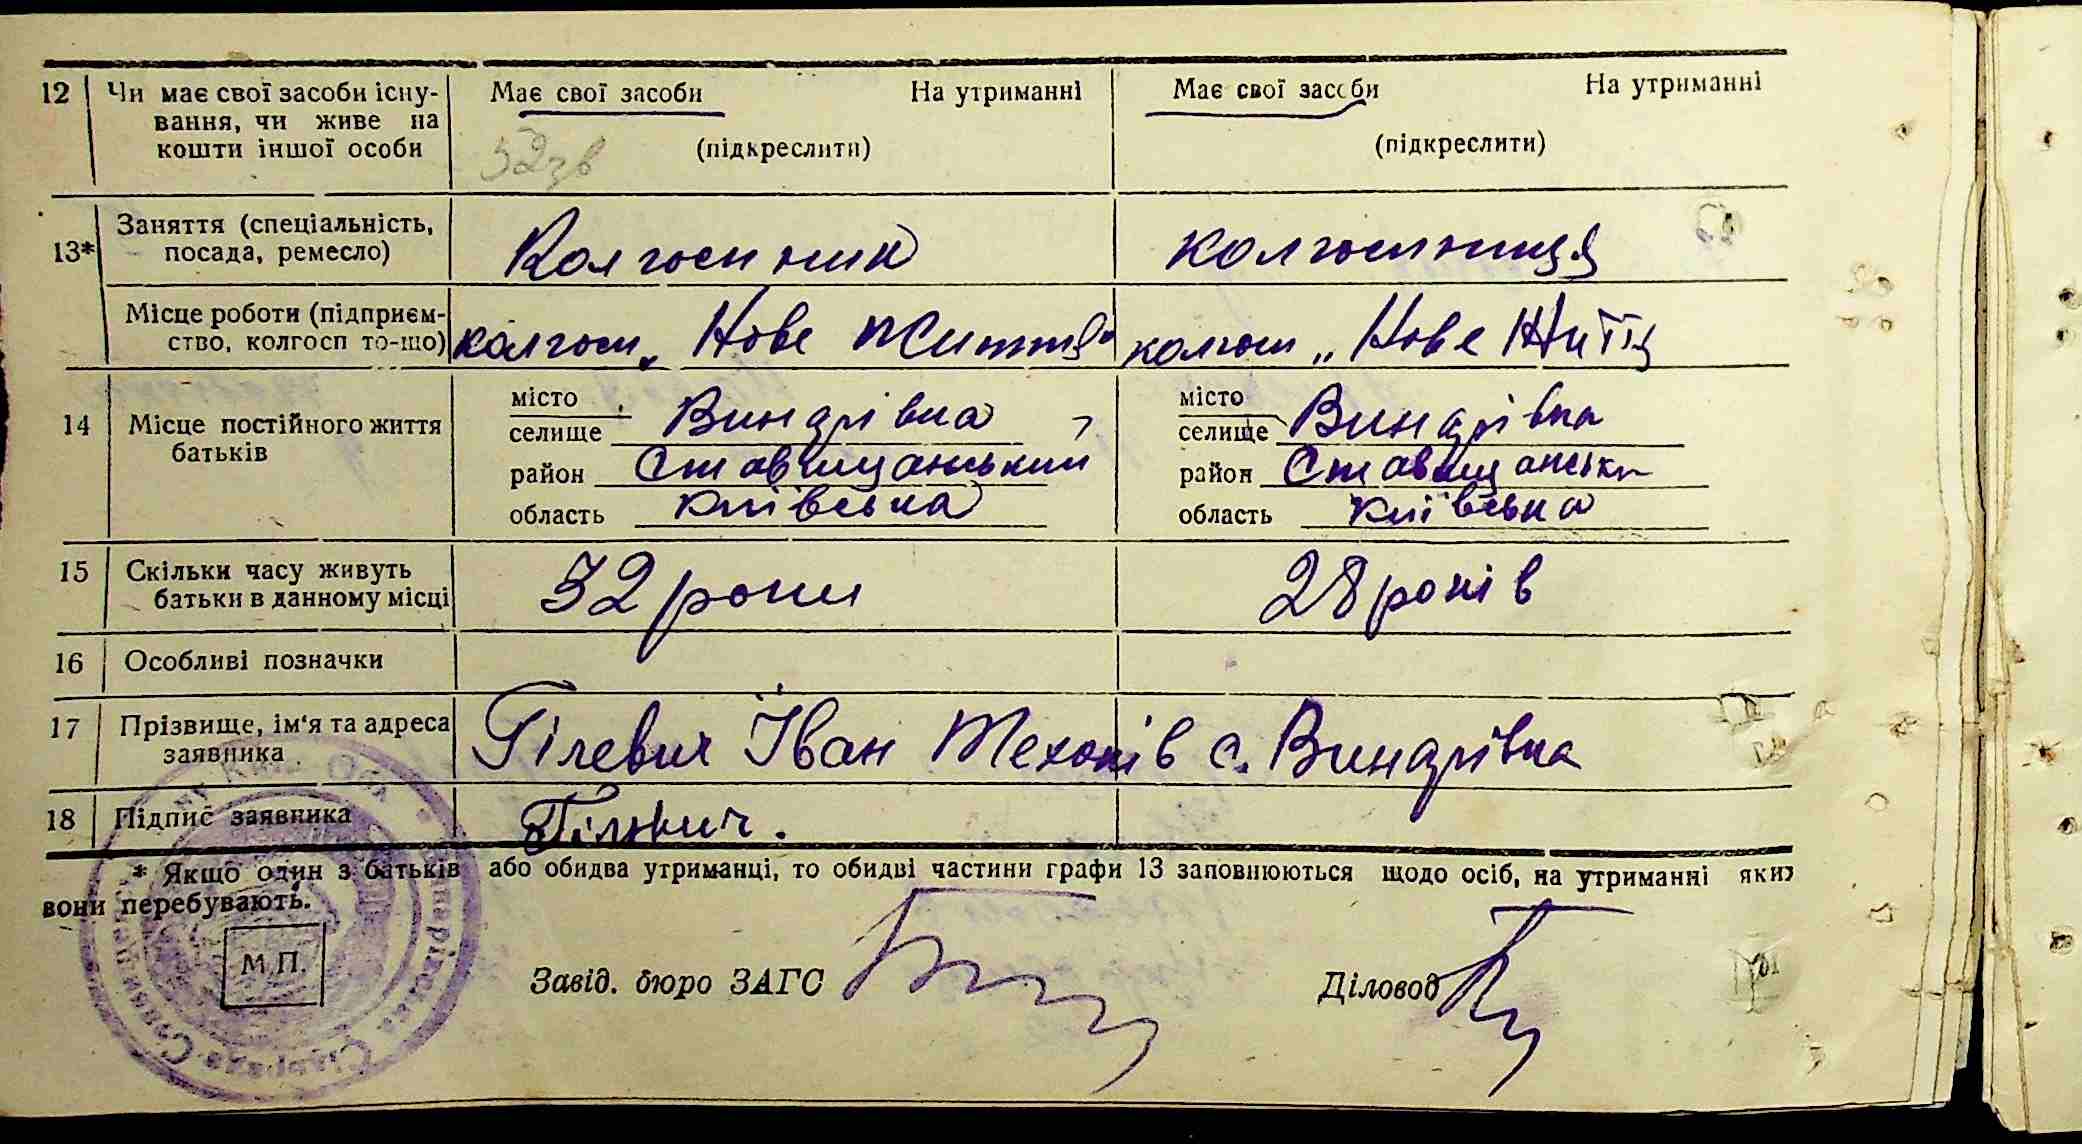 12 Чи має свої засоби існу- Має свої засоби На утриманні Має свої засоби На утриманні
вання, чи живе на
кошти іншої особи (підкреслити) (підкреслити)
Заняття (спеціальність,
13* посада, ремесло) Колгоспник колгоспниця
Місце роботи (підприєм-
ство, колгосп то-що) колгосп „Нове Життя" колгосп „Нове Життя
місто місто
14 Місце постійного життя селище Винарівка селище Винарівка
батьків район Ставищанський район Ставищанськи
область Київська область Київська
15 Скільки часу живуть 32 роки 28 років
батьки в данному місці
16 Особливі позначки
17 Прізвище, ім'я та адреса Гілевич Іван с. Винарівка
заявника
18 Підпис заявника Гілевич.
* Якщо один з батьків або обидва утриманці, то обидві частини графи 13 заповнюються щодо осіб, на утриманні яких
вони перебувають.
М.П. Завід. бюро ЗАГС Діловод